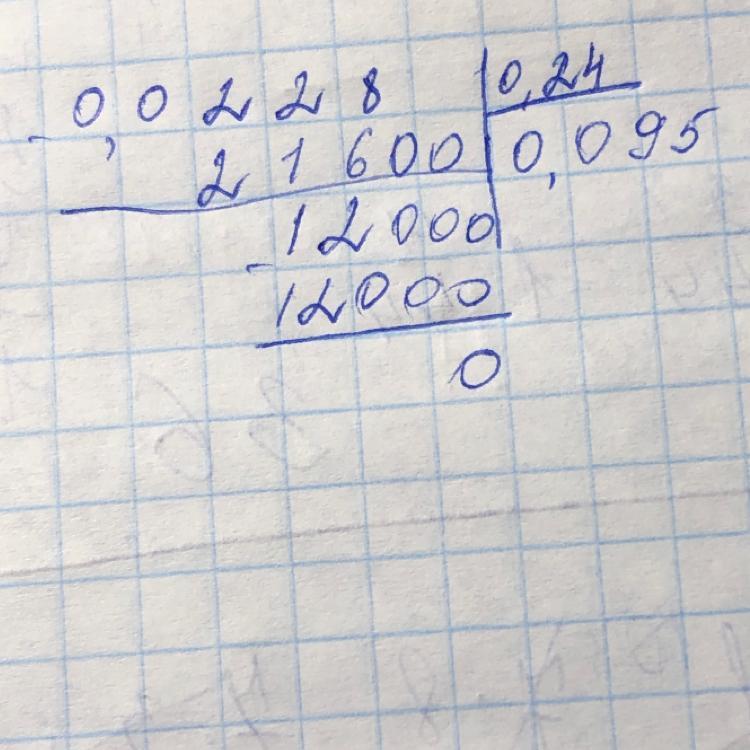 0,0228 0,24
21600 0,095
12000
12000
0